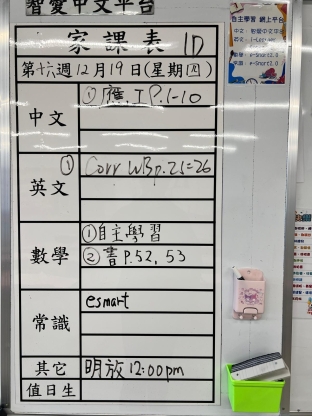 智愛中文平台
家課表 1D
第十六週12月19日(星期四)
中文 ①應, I P.1-10
英文 ① Corr WB p.21-26
數學 ①自主學習
②書 P.52, 53
常識 esmart
其它 明放 12:00pm
值日生
自主學習 網上平台
中文: 智愛中文平台